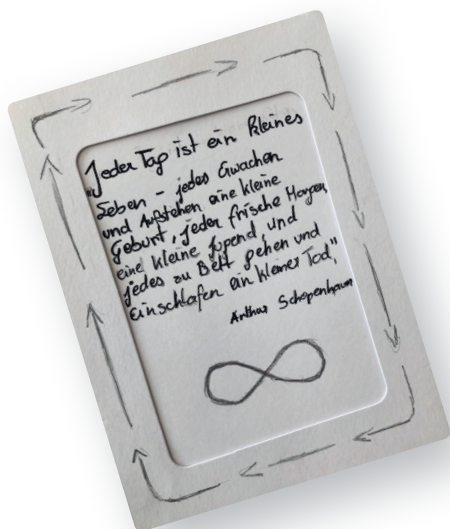 „Jeder Tag ist ein kleines
Leben – jedes Erwachen
und Aufstehen eine kleine
Geburt, jeder frische Morgen
eine kleine Jugend, und
jedes zu Bett gehen und
Einschlafen ein kleiner Tod."
Arthur Schopenhauer